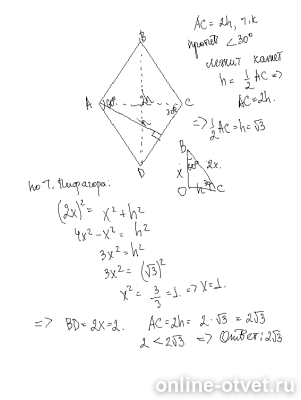 AC = 2h, т.к
против ∠30°
лежит катет
h = 1/2 AC =>
AC = 2h.
=> 1/2 AC = h = √3
B
A
C
D
30°
B
x
2x
O
h
C
по т. Пифагора:
(2x)² = x² + h²
4x² - x² = h²
3x² = h²
3x² = (√3)²
x² = 3/3 = 1. => x = 1.
=> BD = 2x = 2. AC = 2h = 2·√3 = 2√3
2 < 2√3 => Ответ: 2√3
online-otvet.ru